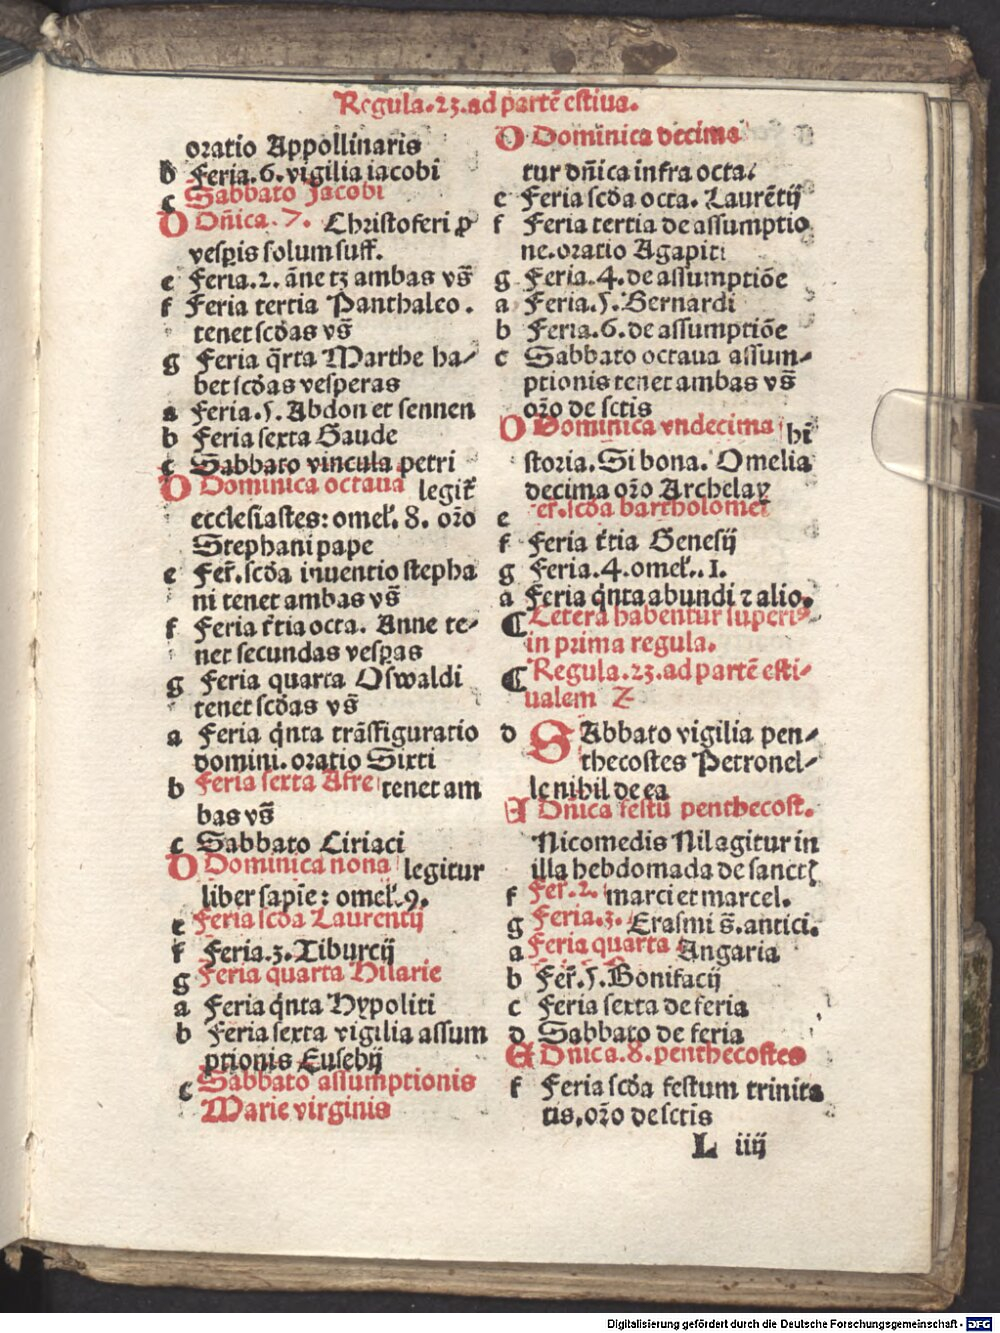 Regula.23.ad partē estiua.
oratio Appollinaris
b Feria.6.vigilia iacobi
c Sabbato Jacobi
D Dn̄ica.7. Christoferi ꝓ
vesꝑis solum suff.
e Feria.2. āne tꝫ ambas vs̄
f Feria tertia Panthaleo.
tenet scd̄as vs̄
g Feria q̄rta Marthe ha⸗
bet scd̄as vesperas
a Feria.5.Abdon et sennen
b Feria sexta Gaude
c Sabbato vincula petri
D Dominica octaua legit᷑
ecclesiastes: omel̄. 8. or̄o
Stephani pape
e Fer̄.scd̄a inuentio stepha
ni tenet ambas vs̄
f Feria t̄tia octa. Anne te⸗
net secundas vesꝑas
g Feria quarta Oswaldi
tenet scd̄as vs̄
a Feria q̇nta trāssiguratio
domini.oratio Sixti
b Feria sexta Afre tenet am
bas vs̄
c Sabbato Ciriaci
D Dominica nona legitur
liber sapīe: omel̄.9.
e Feria scd̄a Laurentij
f Feria.3.Tiburcij
g Feria quarta Hilarie
a Feria q̇nta Hypoliti
b Feria sexta vigilia assum
ptionis Eusebij
c Sabbato assumptionis
Marie virginis
D Dominica decima
tur dn̄ica infra octa.
e Feria scd̄a octa. Laurētij
f Feria tertia de assumptio
ne.oratio Agapiti
g Feria.4.de assumptiōe
a Feria.5.Bernardi
b Feria.6.de assumptiōe
c Sabbato octaua assum⸗
ptionis tenet ambas vs̄
or̄o de sctis
D Dominica vndecima hi
storia.Si bona. Omelia
decima or̄o Archelay
e fer̄.scd̄a bartholomei
f Feria t̄tia Genesij
g Feria.4.omel̄..1.
a Feria q̇nta abundi ⁊ alio.
¶ Cetera habentur superi⁹
in prima regula.
¶ Regula.23.ad partē esti⸗
ualem Z
d SAbbato vigilia pen⸗
thecostes Petronel⸗
le nihil de ea
E Dn̄ica festū penthecost.
Nicomedis Nil agitur in
illa hebdomada de sanctꝭ
f Fer̄.2. marci et marcel.
g Feria.3. Erasmi s̄.antici.
a Feria quarta Angaria
b Fer̄.5.Bonifacij
c Feria sexta de feria
d Sabbato de feria
E Dnica.8.penthecostes
f Feria scd̄a festum trinita
tis.or̄o de sctis
L iiij
Digitalisierung gefördert durch die Deutsche Forschungsgemeinschaft - DFG